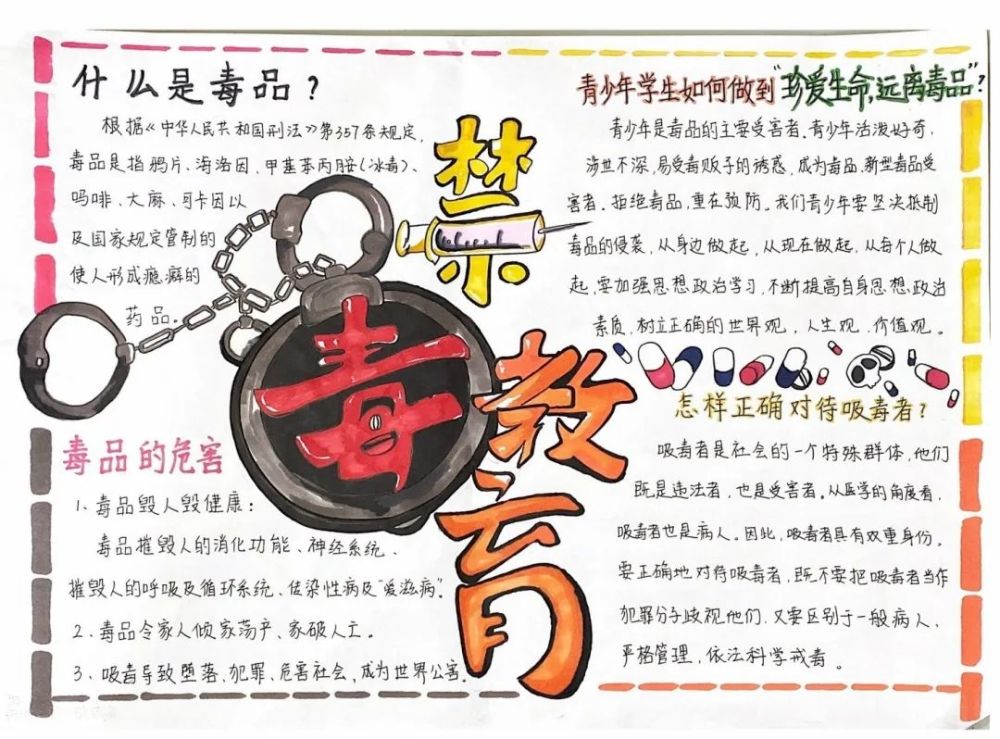 什么是毒品？
根据《中华人民共和国刑法》第357条规定，
毒品是指鸦片、海洛因、甲基苯丙胺（冰毒）、
吗啡、大麻、可卡因以
及国家规定管制的
使人形成瘾癖的
药品。
禁
毒
教
育
毒品的危害
1、毒品毁人毁健康：
毒品摧毁人的消化功能、神经系统、
摧毁人的呼吸及循环系统、传染性病及"爱滋病"。
2、毒品令家人倾家荡产、家破人亡。
3、吸毒导致堕落、犯罪、危害社会，成为世界公害。
青少年学生如何做到"珍爱生命，远离毒品"？
青少年是毒品的主要受害者、青少年活泼好奇，
涉世不深，易受毒贩子的诱惑，成为毒品，新型毒品受
害者。拒绝毒品，重在预防。我们青少年要坚决抵制
毒品的侵袭，从身边做起，从现在做起，从每个人做
起，要加强思想政治学习，不断提高自身思想政治
素质，树立正确的世界观，人生观，价值观。
怎样正确对待吸毒者？
吸毒者是社会的一个特殊群体，他们
既是违法者，也是受害者。从医学的角度看，
吸毒者也是病人。因此，吸毒者具有双重身份。
要正确地对待吸毒者，既不要把吸毒者当作
犯罪分子歧视他们，又要区别于一般病人，
严格管理，依法科学戒毒。